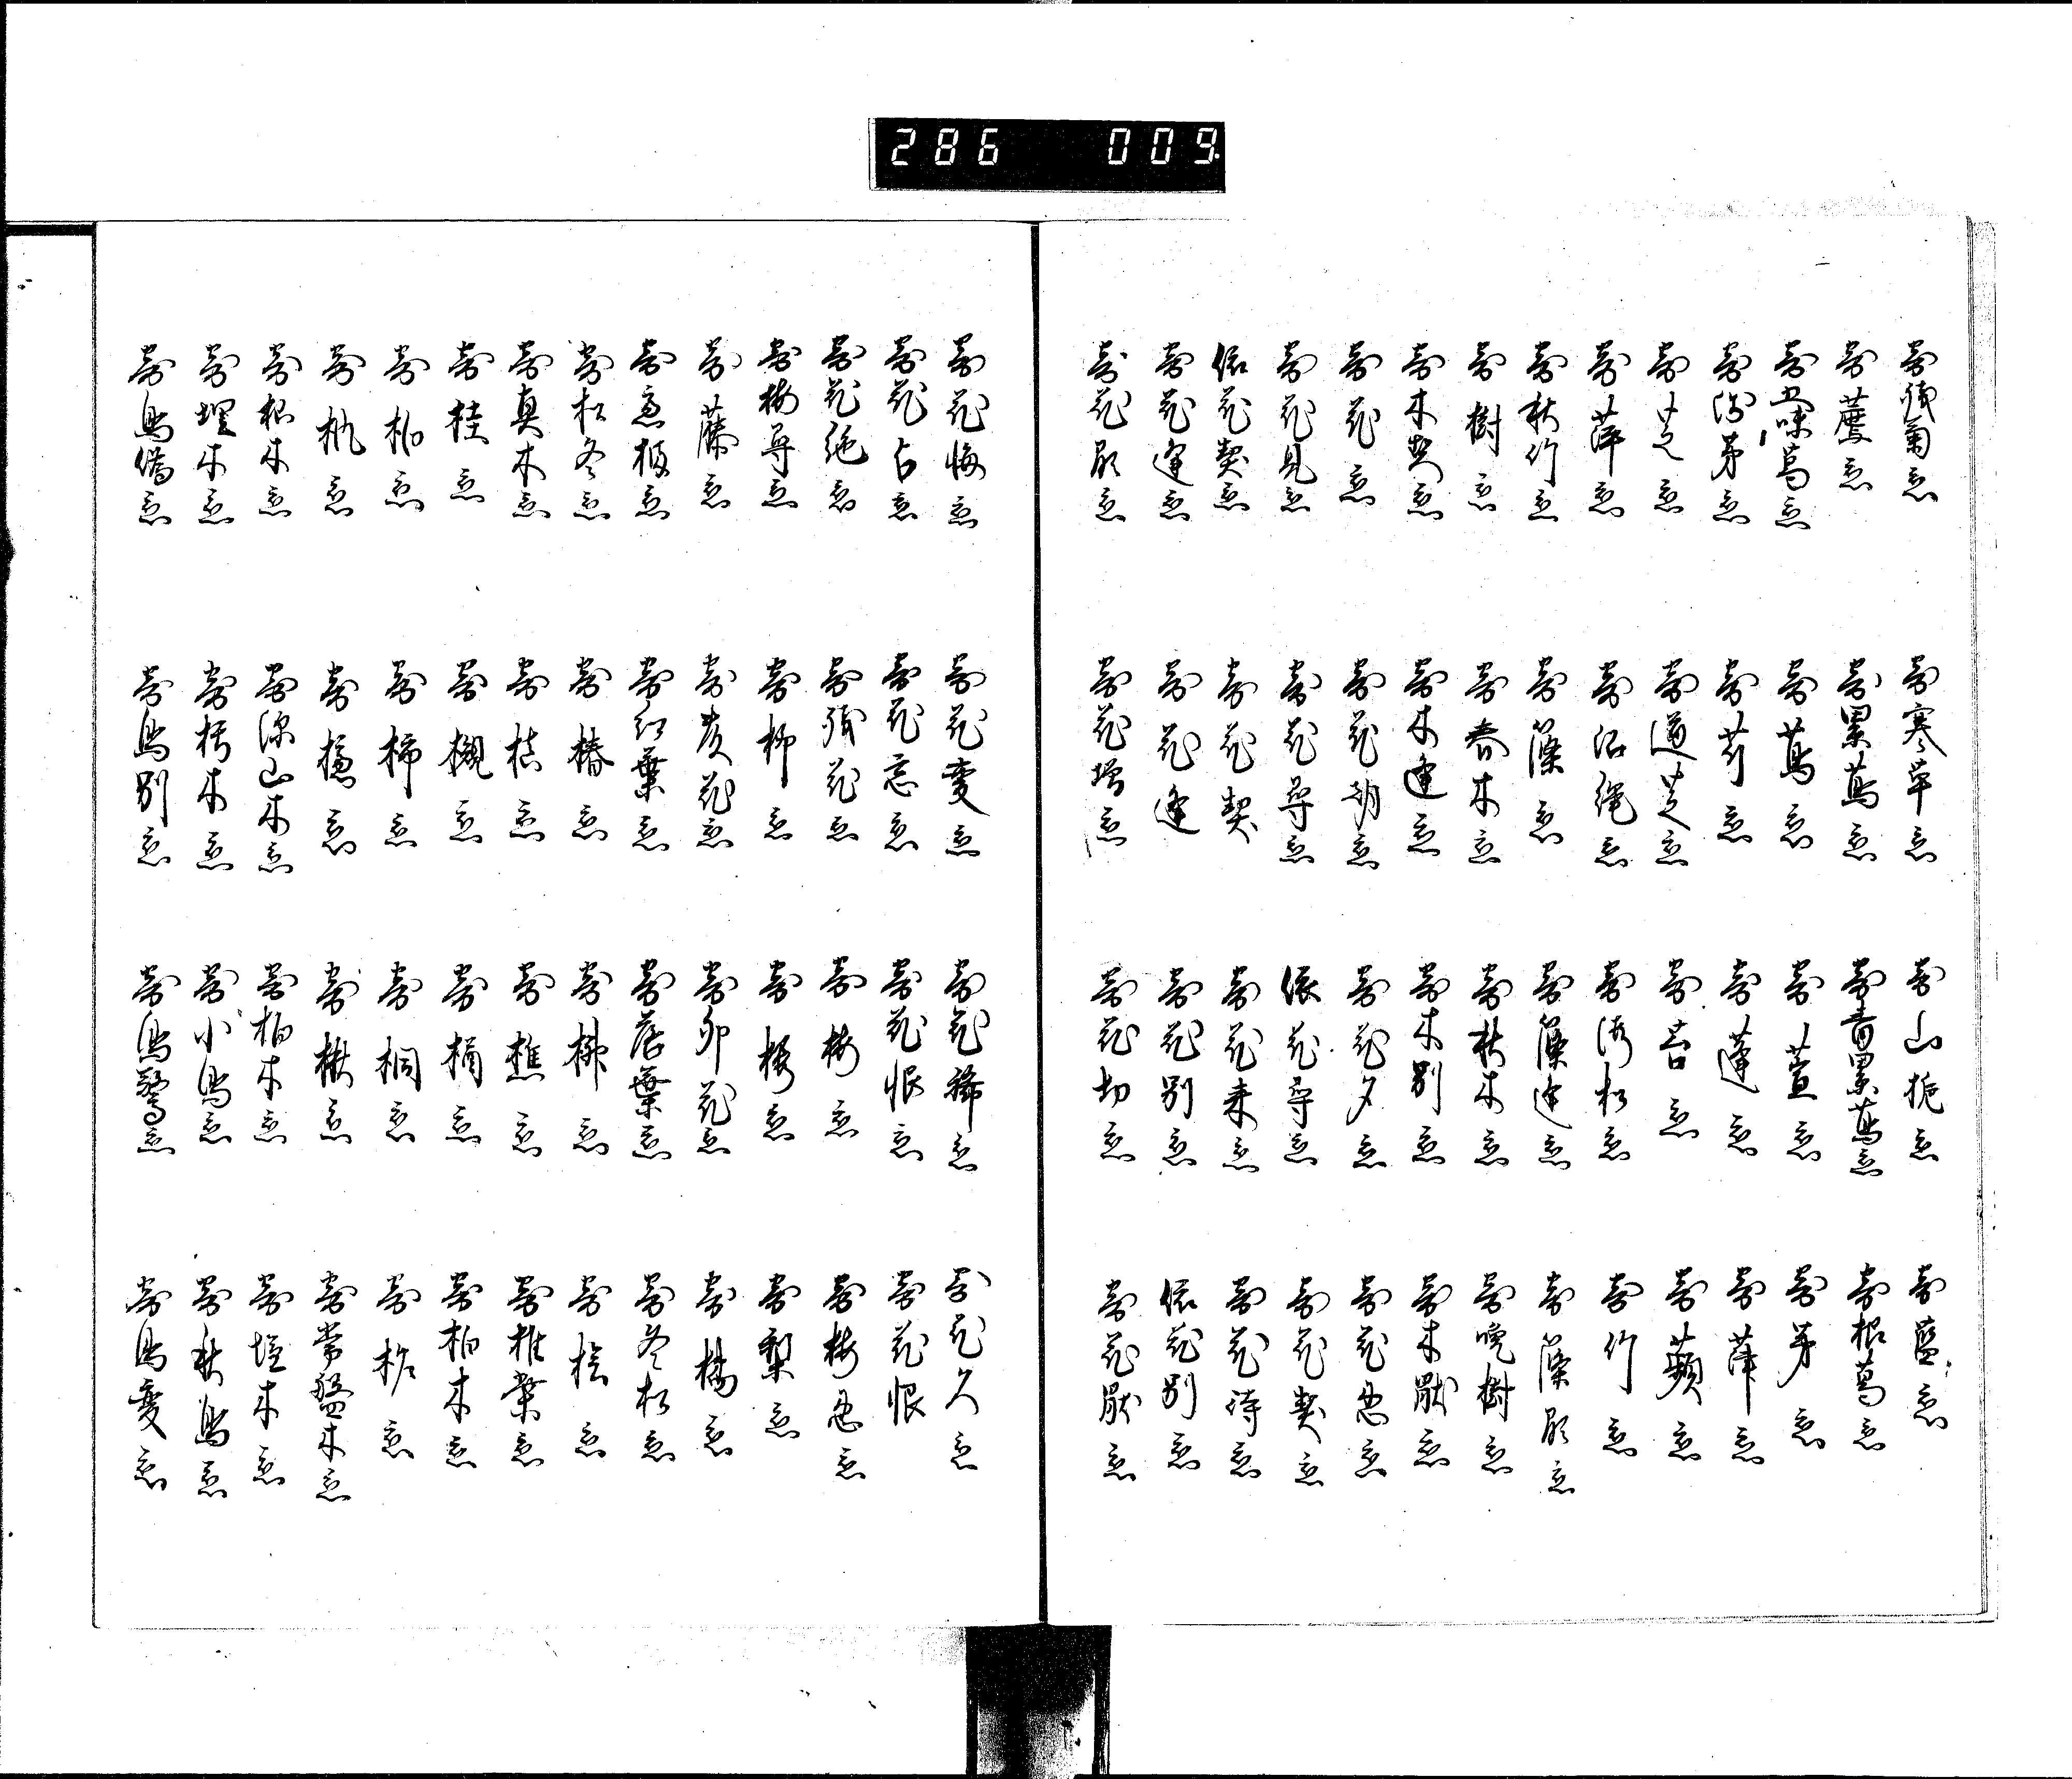 286 009
寄残菊恋 寄寒草恋 寄山梔恋 寄藍恋
寄累蔦恋 寄青累蔦恋 寄根葛恋
寄五味葛恋 寄蔦恋 寄萱恋 寄茅恋
寄浅茅恋 寄蓬恋 寄葎恋
寄芝恋 寄道芝恋 寄苔恋 寄蘋恋
寄萍恋 寄沼縄恋 寄海松恋 寄竹恋
寄秋竹恋 寄藻恋 寄藻逢恋 寄藻顕恋
寄樹恋 寄春木恋 寄秋木恋 寄晩樹恋
寄木契恋 寄木逢恋 寄木別恋 寄木厭恋
寄花恋 寄花朝恋 寄花夕恋 寄花忍恋
寄花見恋 寄花尋恋 依花尋恋 寄花契恋
依花契恋 寄花契 寄花来恋 寄花待恋
寄花逢恋 寄花逢 寄花別恋 依花別恋
寄花顕恋 寄花増恋 寄花切恋 寄花厭恋
寄花悔恋 寄花変恋 寄花稀恋 寄花久恋
寄花占恋 寄花忘恋 寄花恨恋 寄花恨
寄花絶恋 寄残花恋 寄梅恋 寄梅忍恋
寄梅尋恋 寄柳恋 寄桜恋 寄梨恋
寄藤恋 寄卯花恋 寄橘恋
寄紅葉恋 寄落葉恋 寄冬松恋
寄松冬恋 寄椿恋 寄桧恋
寄真木恋 寄槙恋 寄樵恋 寄椎葉恋
寄桂恋 寄槻恋 寄柏木恋
寄柿恋 寄桐恋 寄柞恋
寄楸恋 寄常盤木恋
寄深山木恋 寄柏木恋 寄塩木恋
寄埋木恋 寄朽木恋 寄小鳥恋 寄秋鳥恋
寄鳥偽恋 寄鳥別恋 寄鳥驚恋 寄鳥変恋